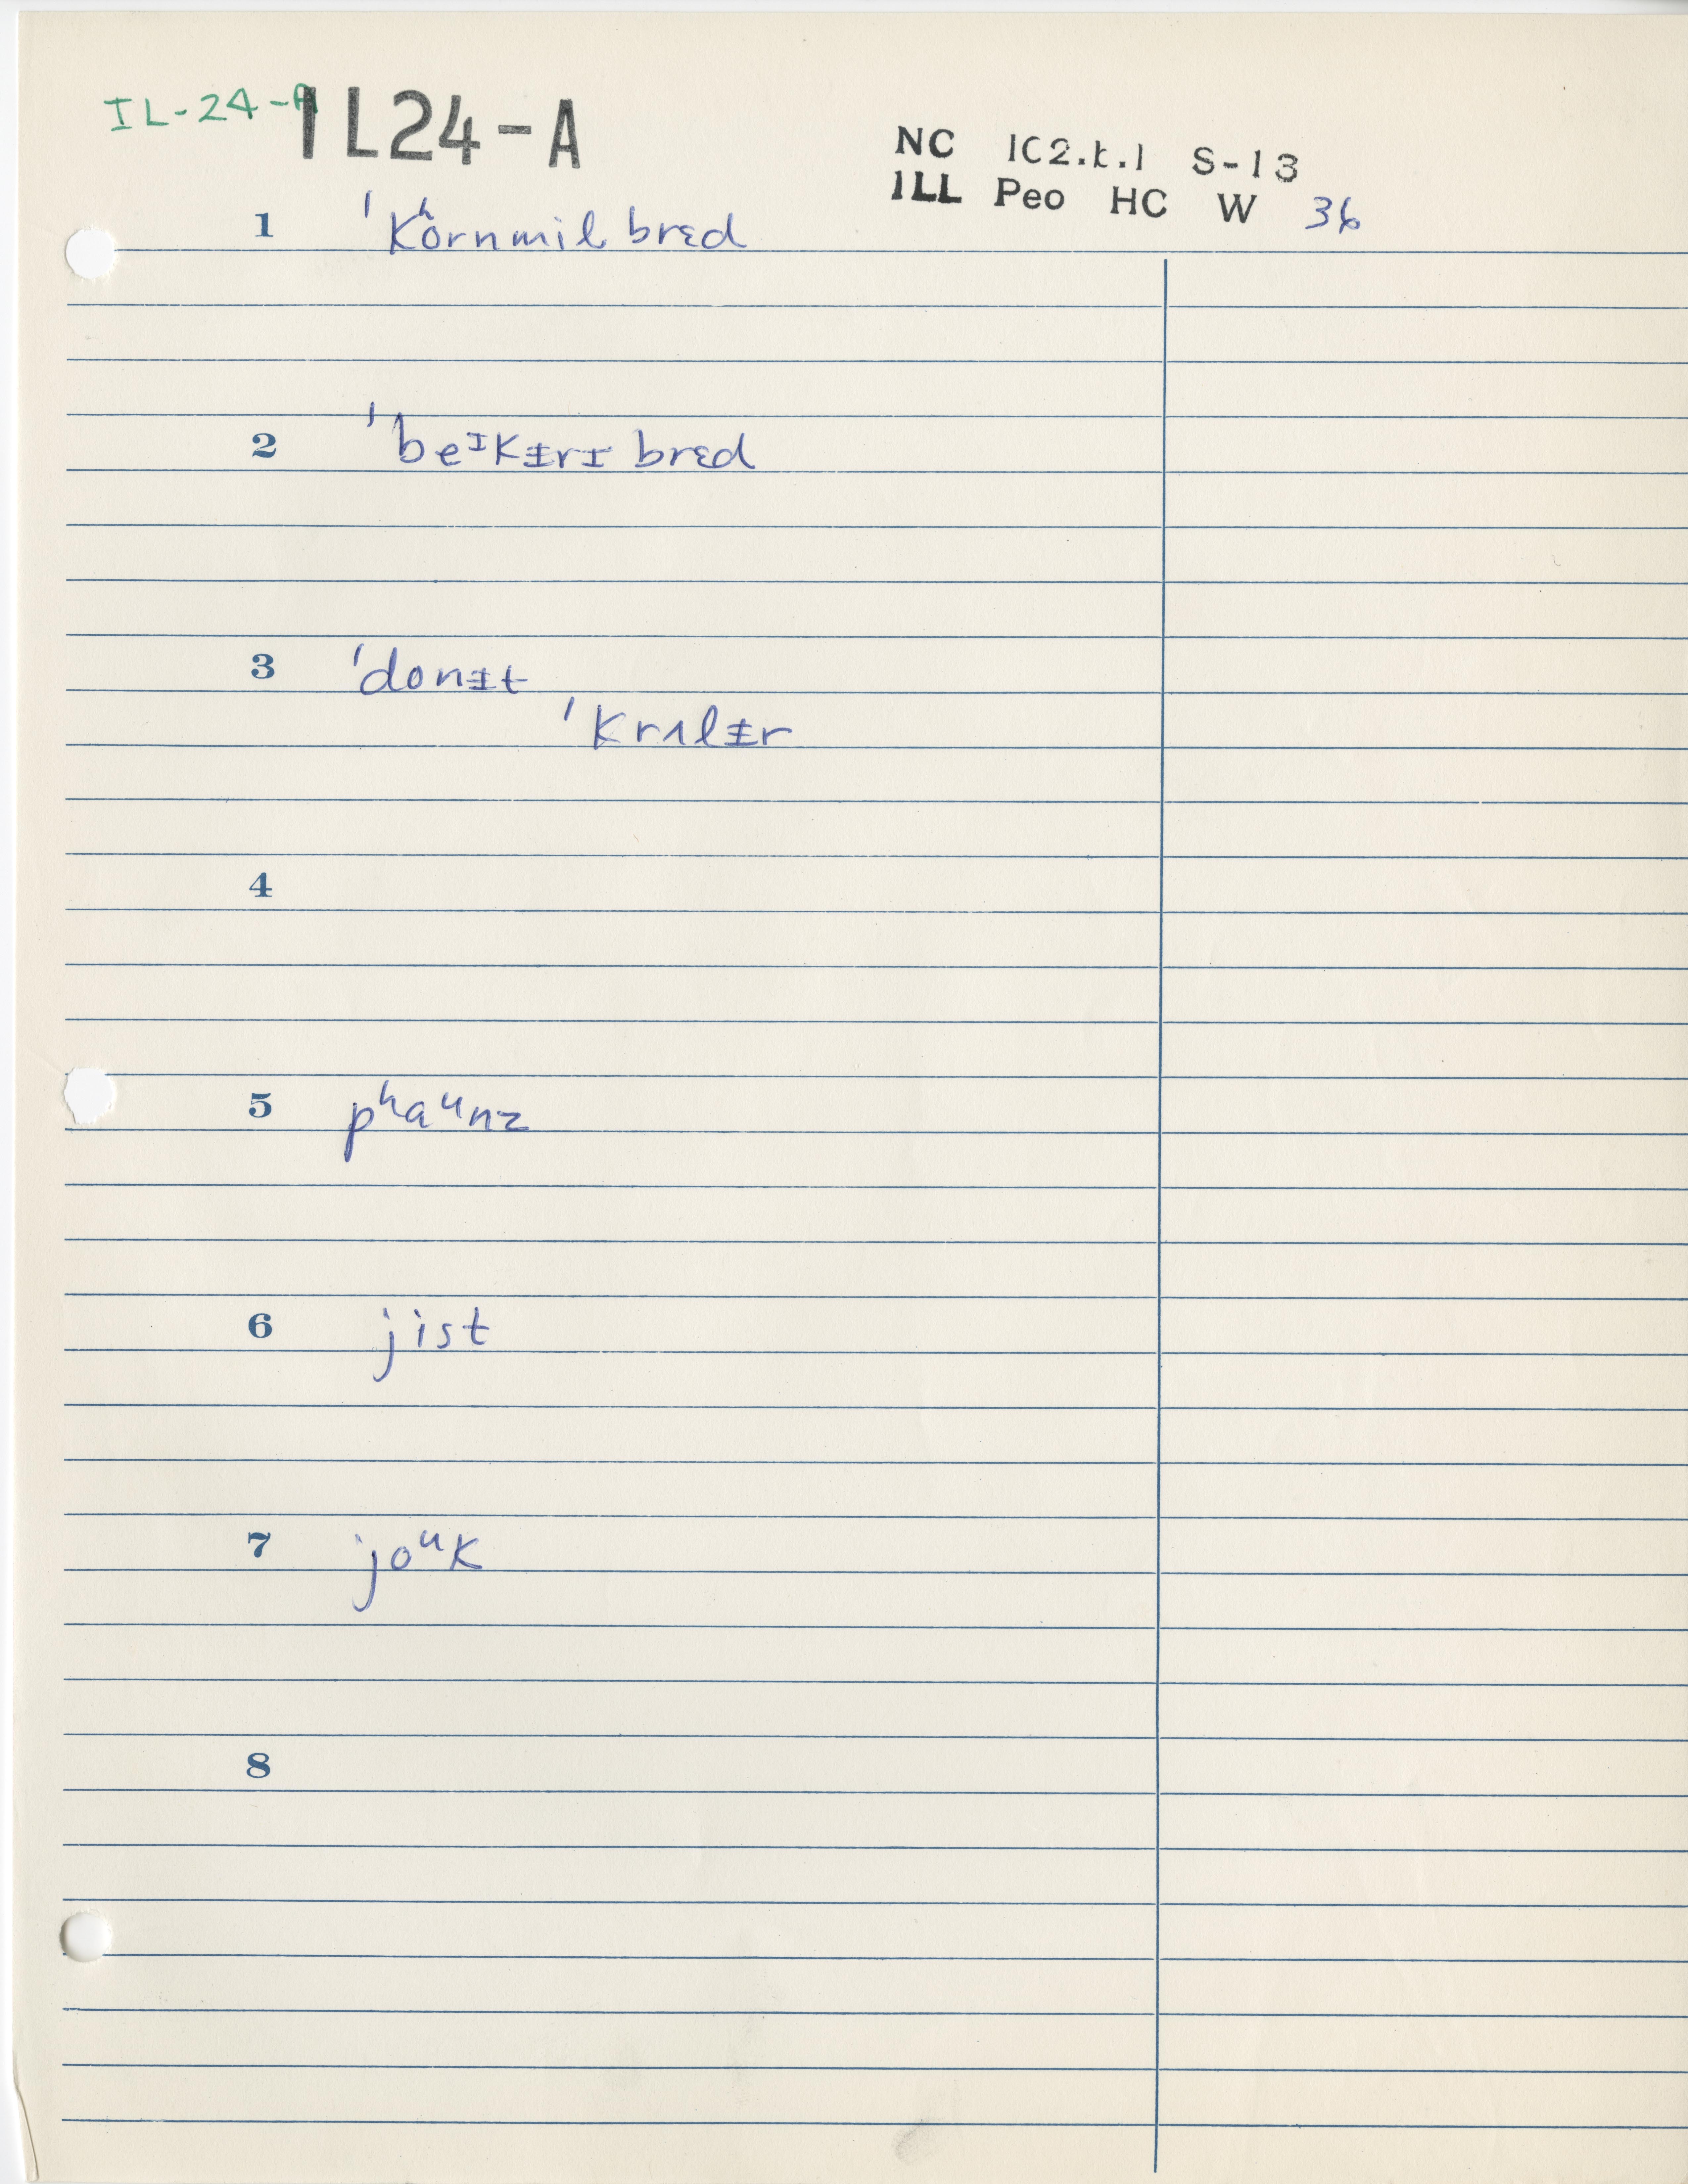 IL-24-A
IL24-A
NC IC2.k.1 S-13
ILL Peo HC W 36
1 ˈkʰornmil brɛd
2 ˈbeᴵkɪ̵rɪ brɛd
3 ˈdonɪ̵t
ˈkrʌlɪ̵r
4
5 pʰaᵘnz
6 jist
7 joᵘk
8